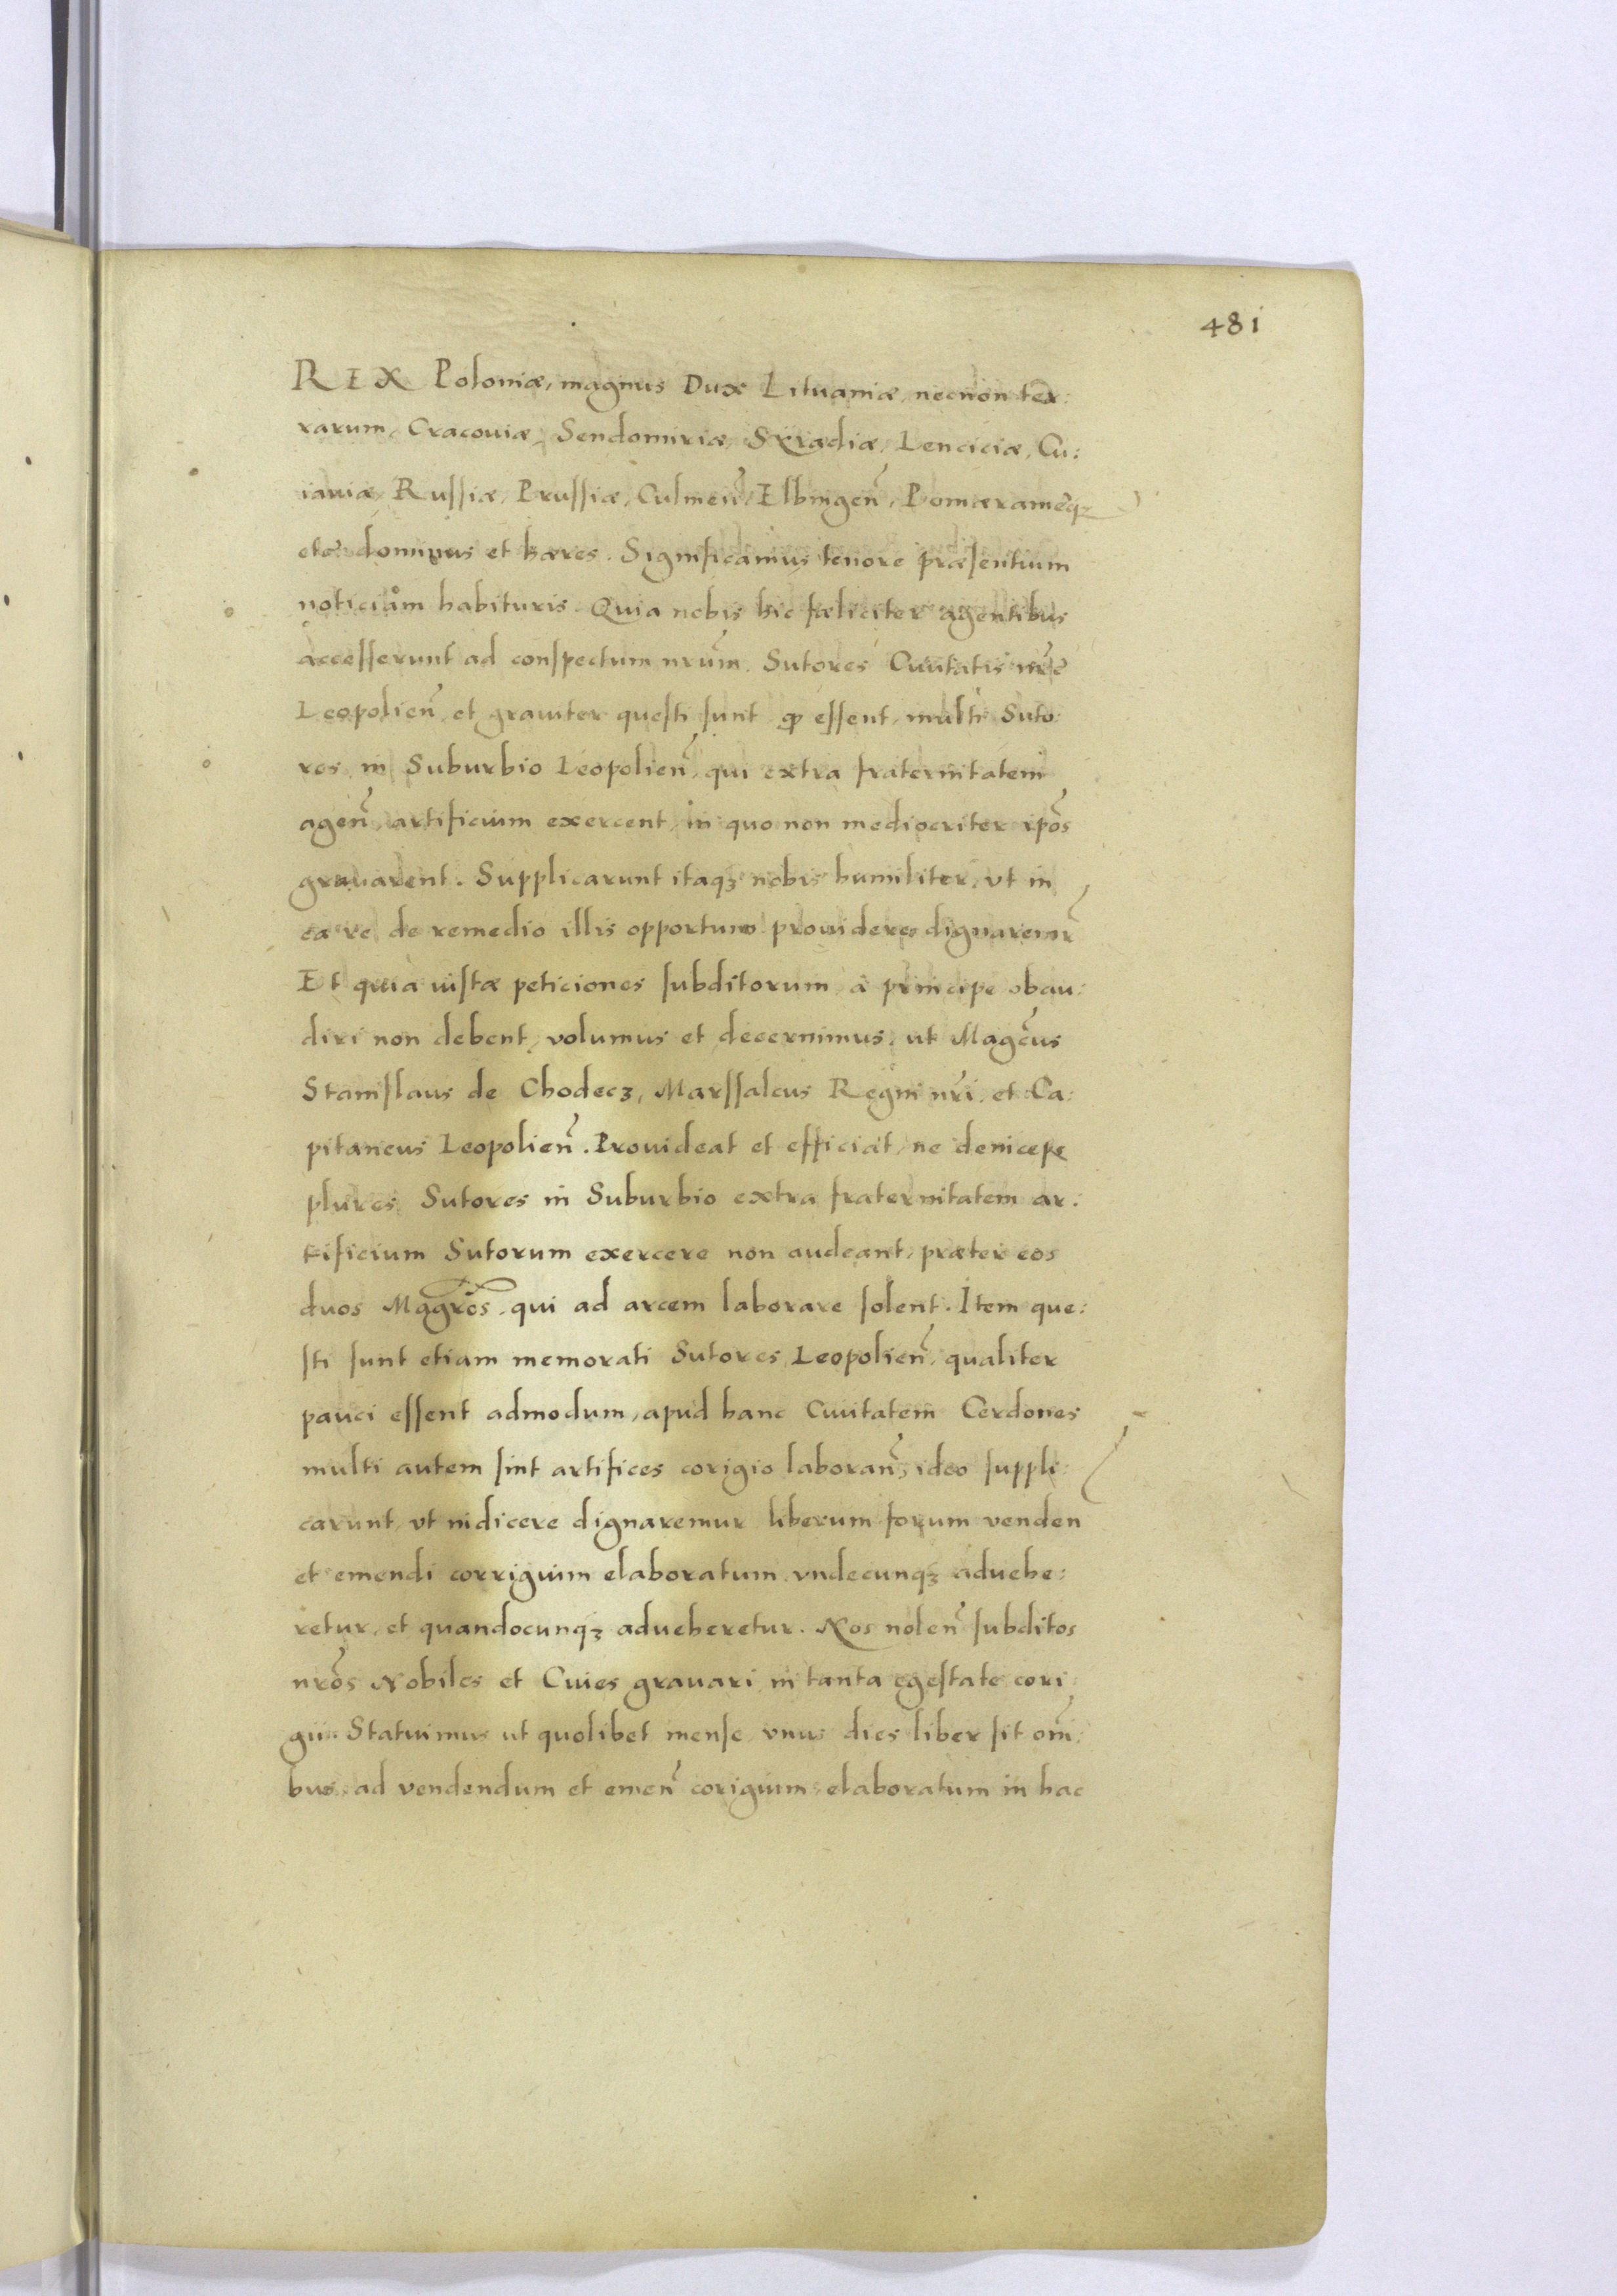 481
REX Poloniæ, magnus Dux Lituaniæ, necnon ter:
rarum, Cracouiæ, Sendomiriæ, Siradiæ, Lenciciæ, Cu:
iauiæ, Russiæ, Prussiæ, Culmeñ, Elbingeñ, Pomæraniæq3
etc̃ dominus et hæres. Significamus tenore præsentium
noticiam habituris. Quia nobis hic fæliciter agentibus
accesserunt ad conspectum nrũm. Sutores Ciuitatis nrẽ
Leopolieñ, et grauiter questi sunt ꝙ essent, multi Suto:
res in Suburbio Leopolieñ, qui extra fraternitatem
ageñ, artificium exercent, in quo non mediocriter ipõs
grauarent. Supplicarunt itaq3 nobis humiliter, vt in
ea re de remedio illis opportuno prouidere dignaremr̃
Et quia iustæ peticiones subditorum à principe obau:
diri non debent, volumus et decernimus, ut Magc̃us
Stanislaus de Chodecz, Marssalcus Regni nrĩ, et Ca:
pitaneus Leopolieñ. Prouideat et efficiat, ne deniceps
plures Sutores in Suburbio extra fraternitatem ar:
tificium Sutorum exercere non audeant, præter eos
duos Magrõs, qui ad arcem laborare solent. Item que:
sti sunt etiam memorati Sutores Leopolieñ, qualiter
pauci essent admodum, apud hanc Ciuitatem Cerdones
multi autem sint artifices corigio laborañ, ideo suppli:
carunt, vt indicere dignaremur liberum forum venden
et emendi corrigium elaboratum vndecunq3 aduehe:
retur, et quandocunq3 adueheretur. Nos noleñ subditos
nrõs Nobiles et Ciues grauari in tanta egestate cori:
gii. Statuimus ut quolibet mense vnus dies liber sit om̃:
bus ad vendendum et emeñ corigium elaboratum in hac